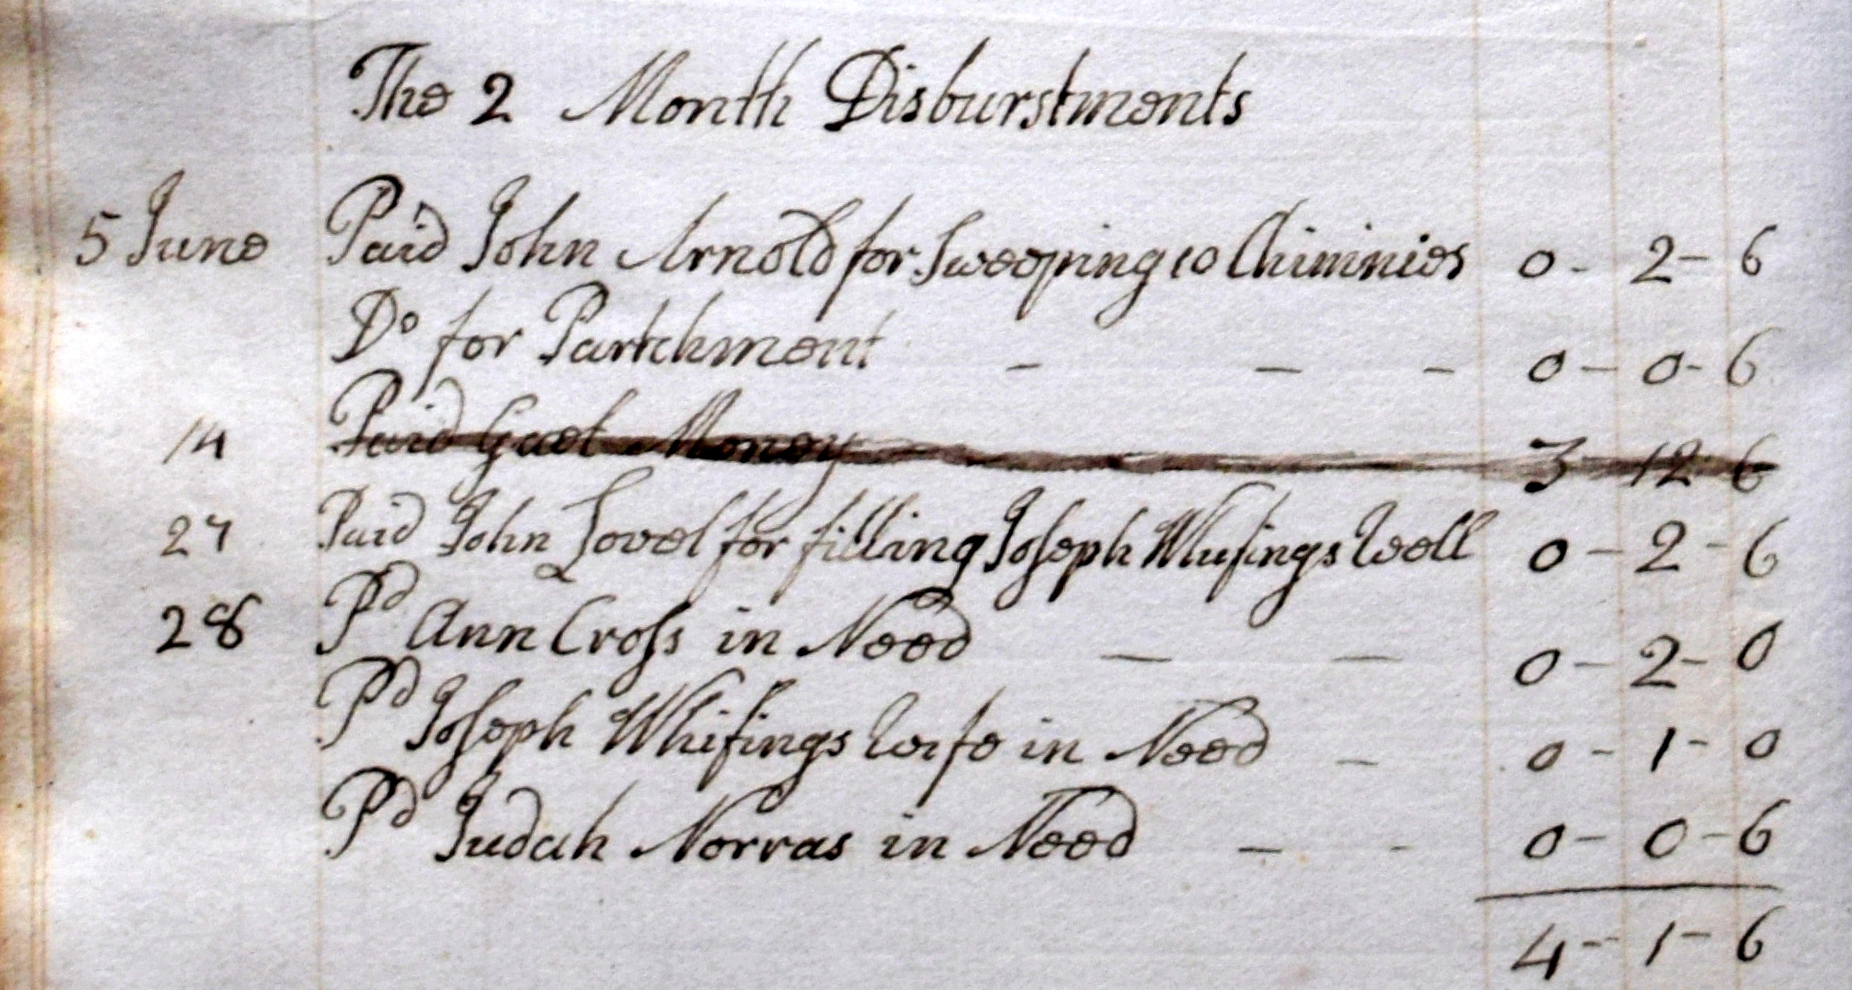 The 2 Month Disburstments
5 June Paid John Arnold for Sweeping 10 Chimnies 0 - 2 - 6
Do for Partchment - - - 0 - 0 - 6
14 Paid Gaol Money 3 12 6
27 Paid John Lovel for filling Joseph Whisings Well 0 - 2 - 6
28 Pd Ann Cross in Need - - 0 - 2 - 0
Pd Joseph Whisings Wife in Need - 0 - 1 - 0
Pd Judah Norras in Need - - 0 - 0 - 6
4 - 1 - 6